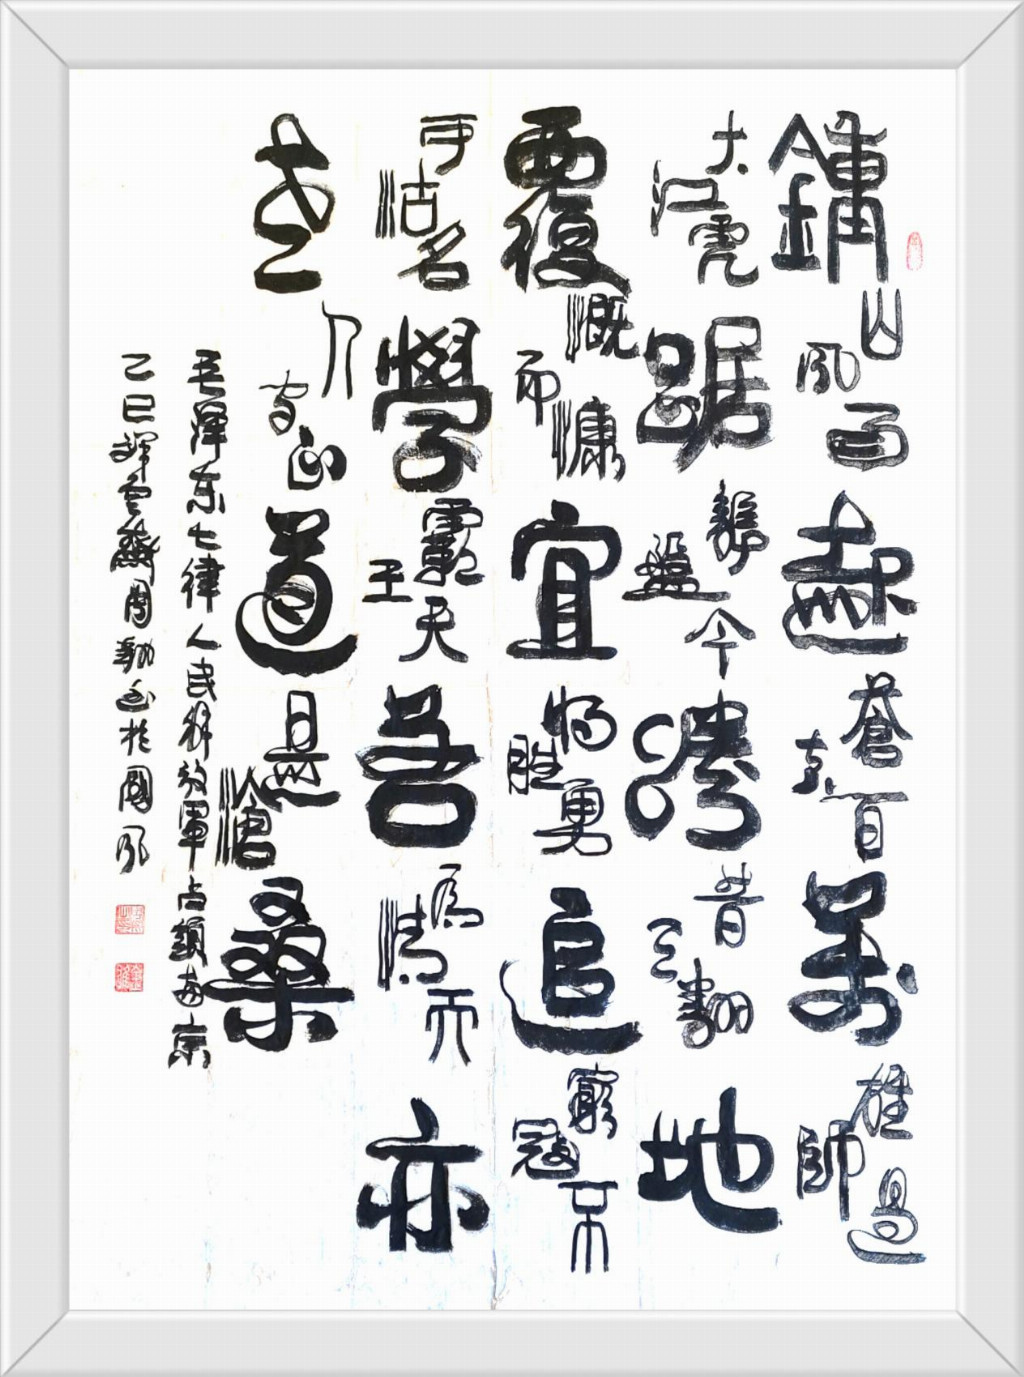 鐘山風雨起蒼黃百萬雄師過
大江虎踞龍盤今勝昔天翻地
覆慨而慷宜將胜勇追窮寇不
可沽名學霸王天若有情天亦
老人間正道是滄桑
毛泽东七律人民解放軍占領南京
乙巳雲齋周書於國風